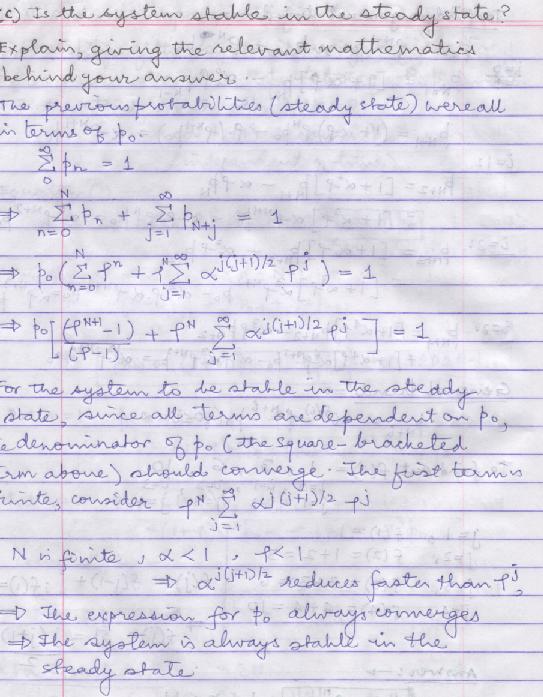 (c) Is the system stable in the steady state?
Explain, giving the relevant mathematics
behind your answer.
The previous probabilities (steady state) were all
in terms of p₀.
∞Σ0 pₙ = 1
⇒ NΣn=0 pₙ + ∞Σj=1 p_N+j = 1
⇒ p₀ ( NΣn=0 ρⁿ + ρᴺ ∞Σj=1 α^j(j+1)/2 ρʲ ) = 1
⇒ p₀ [ (ρᴺ⁺¹-1)/(ρ-1) + ρᴺ ∞Σj=1 α^j(j+1)/2 ρʲ ] = 1
For the system to be stable in the steady
state, since all terms are dependent on p₀,
e denominator of p₀ (the square-bracketed
erm above) should converge. The first term is
finite, consider ρᴺ ∞Σj=1 α^j(j+1)/2 ρʲ
N is finite, α<1, ρ<1
⇒ α^j(j+1)/2 reduces faster than ρʲ,
⇒ The expression for p₀ always converges
⇒ The system is always stable in the
steady state.